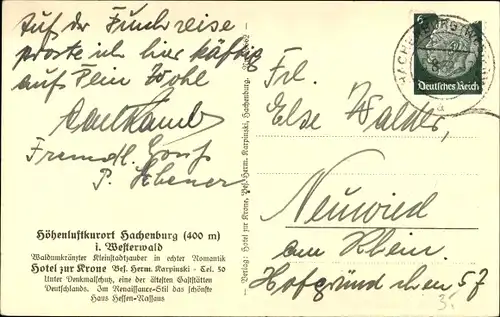 Auf der Funchreise
proste ich hier kräftig
auf Dein Wohl
Freundl.
P. Ebener
Höhenluftkurort Hachenburg (400 m)
i. Westerwald
Waldumkränzter Kleinstadtzauber in echter Romantik
Hotel zur Krone Bes. Herm. Karpinski - Tel. 50
Unter Denkmalschutz, eine der ältesten Gaststätten
Deutschlands. Im Renaissance-Stil das schönste
Haus Hessen-Nassaus
Verlag: Hotel zur Krone, Bes. Herm. Karpinski, Hachenburg,
6
Deutsches Reich
HACHENBURG
a
Frl.
Else Walder,
Neuwied
am Rhein
Hofgründchen 57
3.-